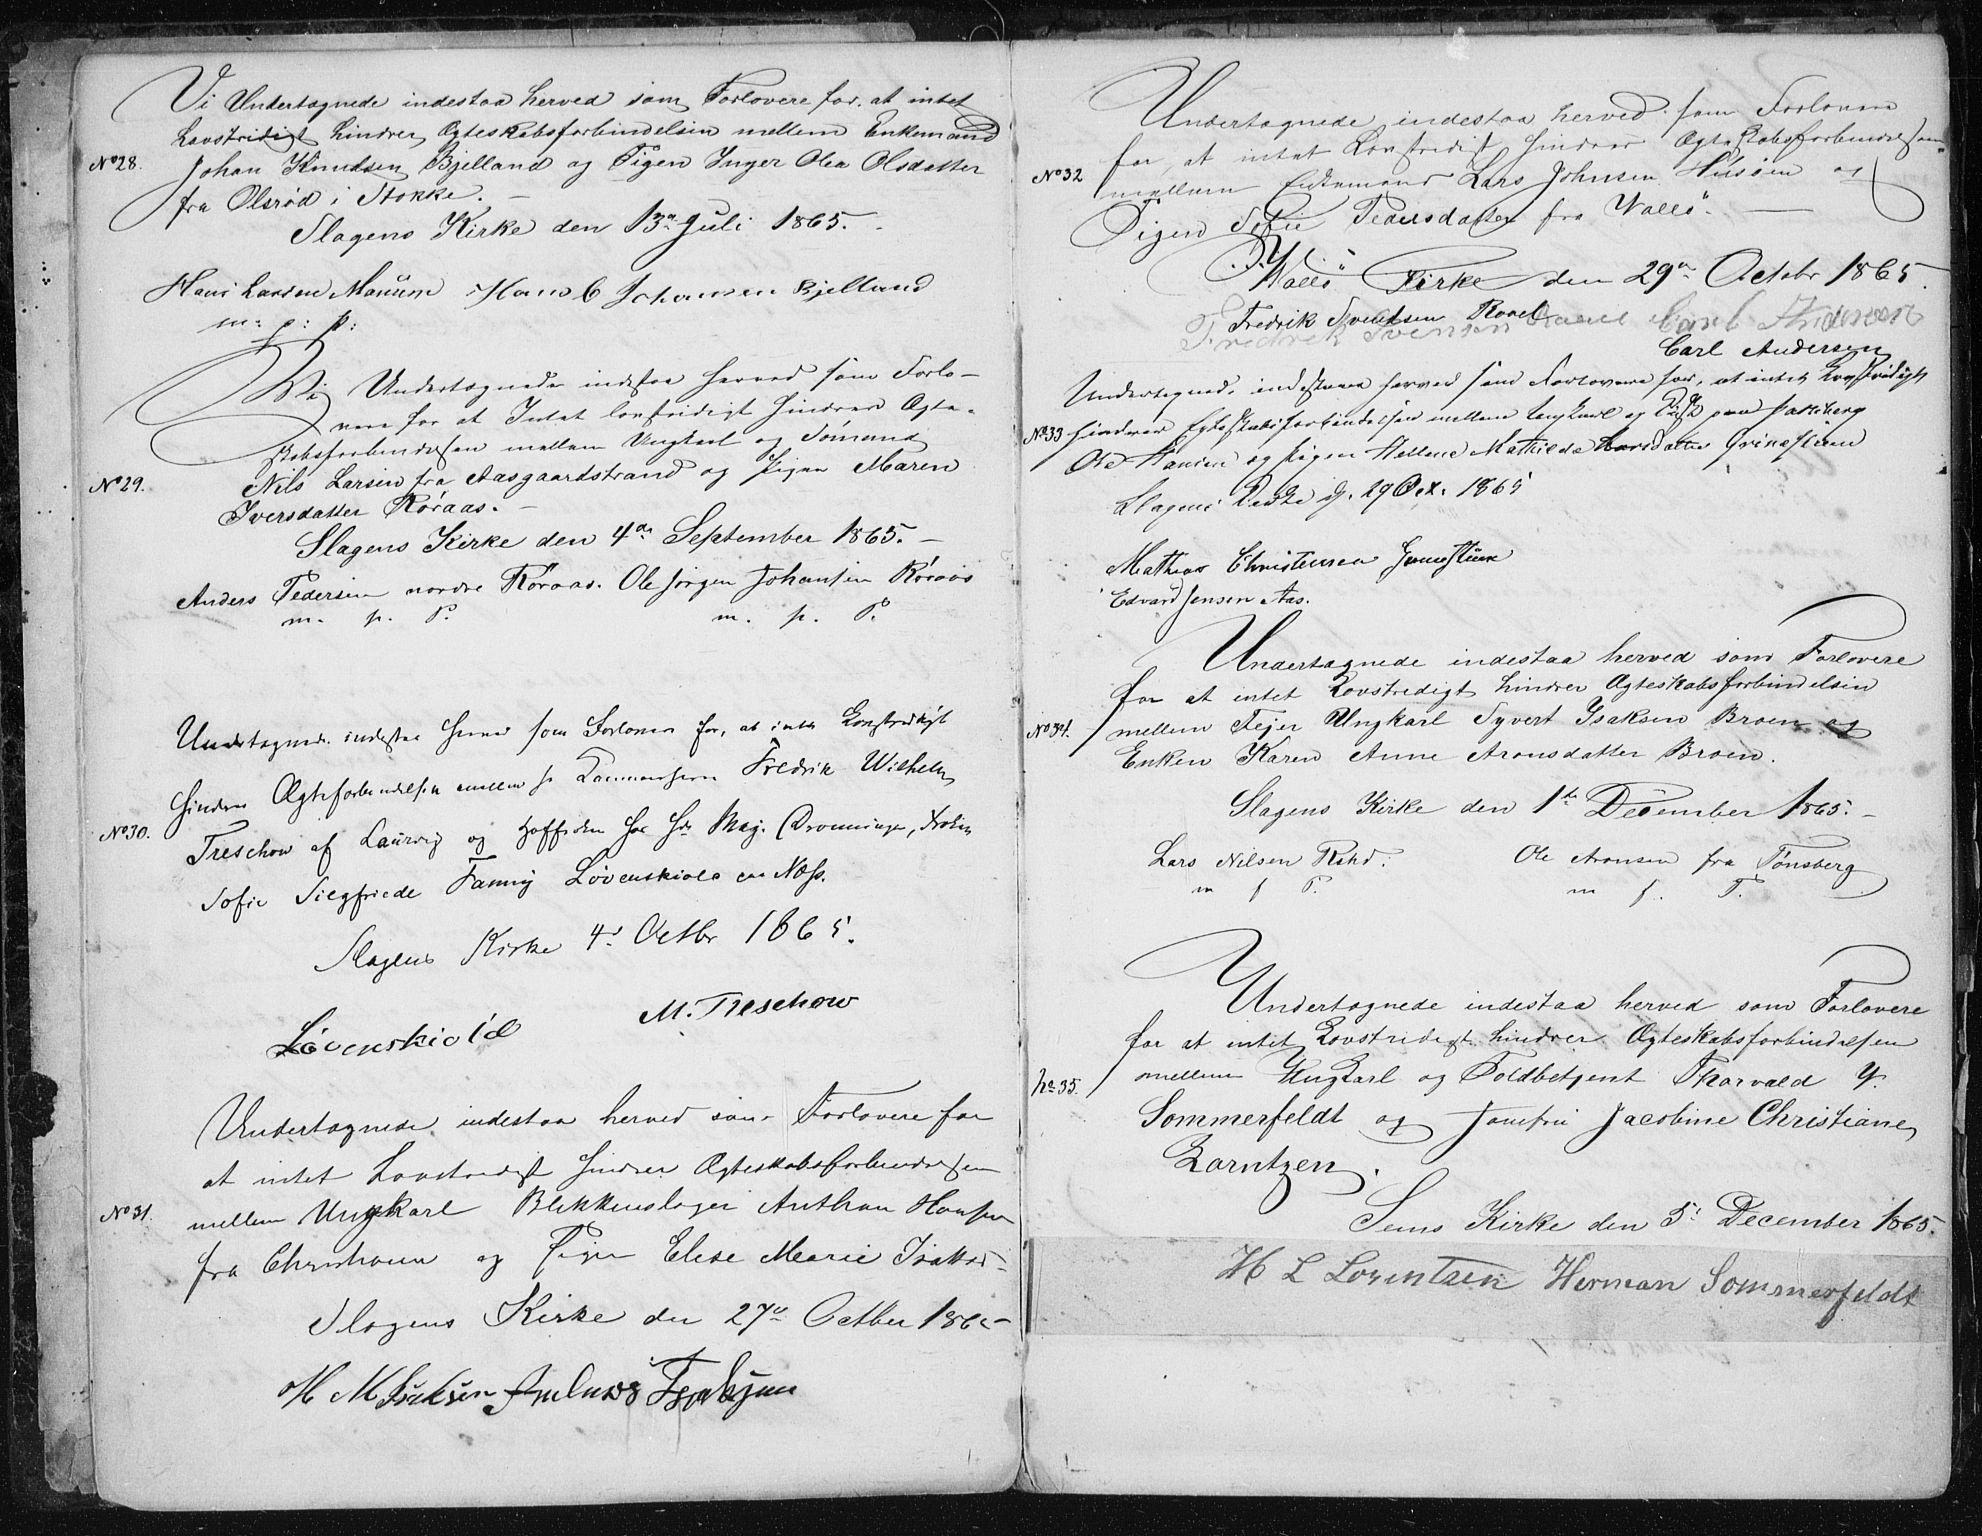 Vi Undertegnede indestaa herved som Forlovere for, at intet
Lovstridigt hindrer Ægteskabsforbindelsen mellem Enkemand
No 28. Johan Knudsen Bjelland og Pigen Inger Olea Olsdatter
fra Olsrød i Stokke. –
Slagens Kirke den 13de Juli 1865.
Hans Larsen Johansen Bjelland
m: p: p:
Vi Undertegnede indestaa herved som Forlo-
vere for at Intet lovstridigt hindrer Ægte-
skabsforbindelsen mellem Ungkarl og Sømand
No 29. Nils Larsen fra Aasgaardstrand og Pigen Maren
Iversdatter Røraas. –
Slagens Kirke den 4de September 1865. –
Anders Pedersen nordre Røraas. Ole Jørgen Johansen Røraas
m. p. P. m. p. P.
Undertegnede indestaa herved som Forlovere for, at intet Lovstridigt
hindrer Ægteforbindelsen mellem Fredrik Wilhelm
No 30. Treschow af Laurvig og Hoffrøken hos Hds Maj. Dronningen, Frøken
Sofie Siegfriede Fanny Løvenskiold Næss.
Slagens Kirke 4d Octbr 1865.
Løvenskiold M. Treschow
Undertegnede indestaa herved som Forlovere for
at intet Lovstridigt hindrer Ægteskabsforbindelsen
No 31. mellem Ungkarl Blikkenslager Anthon Hansen
fra og Pigen Elise Marie
Slagens Kirke den 27de Octber 1865
H M Isaksen
Undertegnede indestaa herved som Forlovere
for, at intet Lovstridigt hindrer Ægteskabsforbindelsen
No 32 mellem Enkemand Lars Johnsen Husøen og
Pigen Sofie Pedersdatter fra Vallø. –
Vallø Kirke den 29de Octobr 1865.
Fredrik Svendsen Carl Andersen
Fredrik Svensen Carl Andersen
Undertegnede indestaaer herved som Forlovere for, at intet Lovstridigt
No 33 hinderer Egteskabsforbindelsen mellem Ungkarl og
Ole Hansen og Pigen Hellene Mathilde
Slagens Kirke d. 29 Oct. 1865
Mathias Christensen
Edvard Jensen Aas.
Undertegnede indestaa herved som Forlovere
for at intet Lovstridigt hindrer Ægteskabsforbindelsen
No 34. mellem Fejer Ungkarl Syvert Isaksen Broen og
Enken Karen Anne Aronsdatter Broen.
Slagens Kirke den 1ste December 1865. –
Lars Nilsen Ole Aronsen fra Tønsberg
m f P. m f. P.
Undertegnede indestaa herved som Forlovere
for at intet Lovstridigt hindrer Ægteskabsforbindelsen
No 35. mellem Ungkarl og Toldbetjent Thorvald
Sommerfeldt og Jomfru Jacobine Christiane
Lorntzen.
Sems Kirke den 5d December 1865.
H L Lorentzen Herman Sommerfeldt